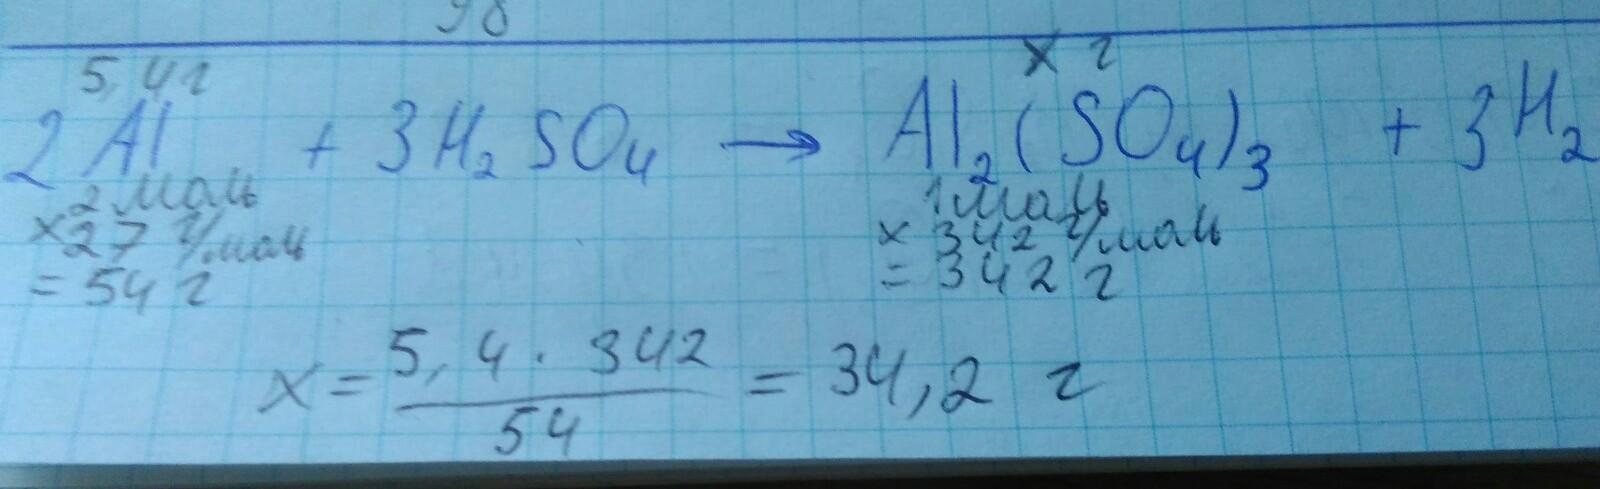 98
5,4 г x г
2Al + 3H₂SO₄ → Al₂(SO₄)₃ + 3H₂
2 моль 1 моль
×27 г/моль × 342 г/моль
= 54 г = 342 г
x = 5,4 · 342 / 54 = 34,2 г